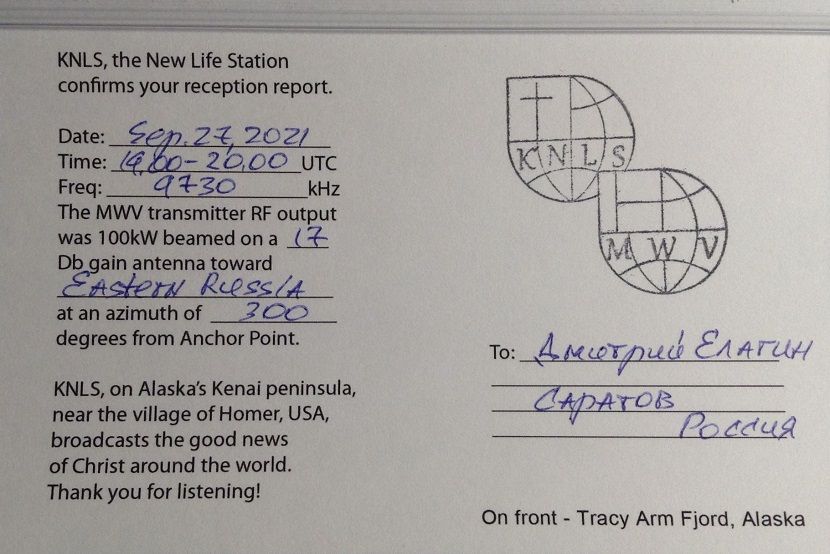 KNLS, the New Life Station
confirms your reception report.
Date: Sep. 27, 2021
Time: 19,00-20,00 UTC
Freq: 9730 kHz
The MWV transmitter RF output
was 100kW beamed on a 17
Db gain antenna toward
Eastern Russia
at an azimuth of 300
degrees from Anchor Point.
KNLS, on Alaska's Kenai peninsula,
near the village of Homer, USA,
broadcasts the good news
of Christ around the world.
Thank you for listening!
KNLS
MWV
To: Дмитрий Елагин
Саратов
Россия
On front - Tracy Arm Fjord, Alaska